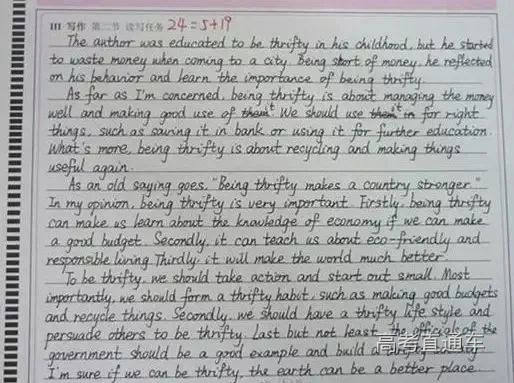 III 写作 第二节 读写任务 24=5+19
The author was educated to be thrifty in his childhood, but he started
to waste money when coming to a city. Being start of money, he reflected
on his behavior and learn the importance of being thrifty.
As far as I'm concerned, being thrifty is about managing the money
well and making good use of them it. We should use them it in for right
things, such as saving it in bank or using it for further education.
What's more, being thrifty is about recycling and making things
useful again.
As an old saying goes, "Being thrifty makes a country stronger."
In my opinion, being thrifty is very important. Firstly, being thrifty
can make us learn about the knowledge of economy if we can make
a good budget. Secondly, it can teach us about eco-friendly and
responsible living. Thirdly, it will make the world much better.
To be thrifty, we should take action and start out small. Most
importantly, we should form a thrifty habit, such as making good budgets
and recycle things. Secondly, we should have a thrifty life style and
persuade others to be thrifty. Last but not least, the officials of the
government should be a good example and build a thrifty
I'm sure if we can be thrifty, the earth can be a better place.
高考直通车